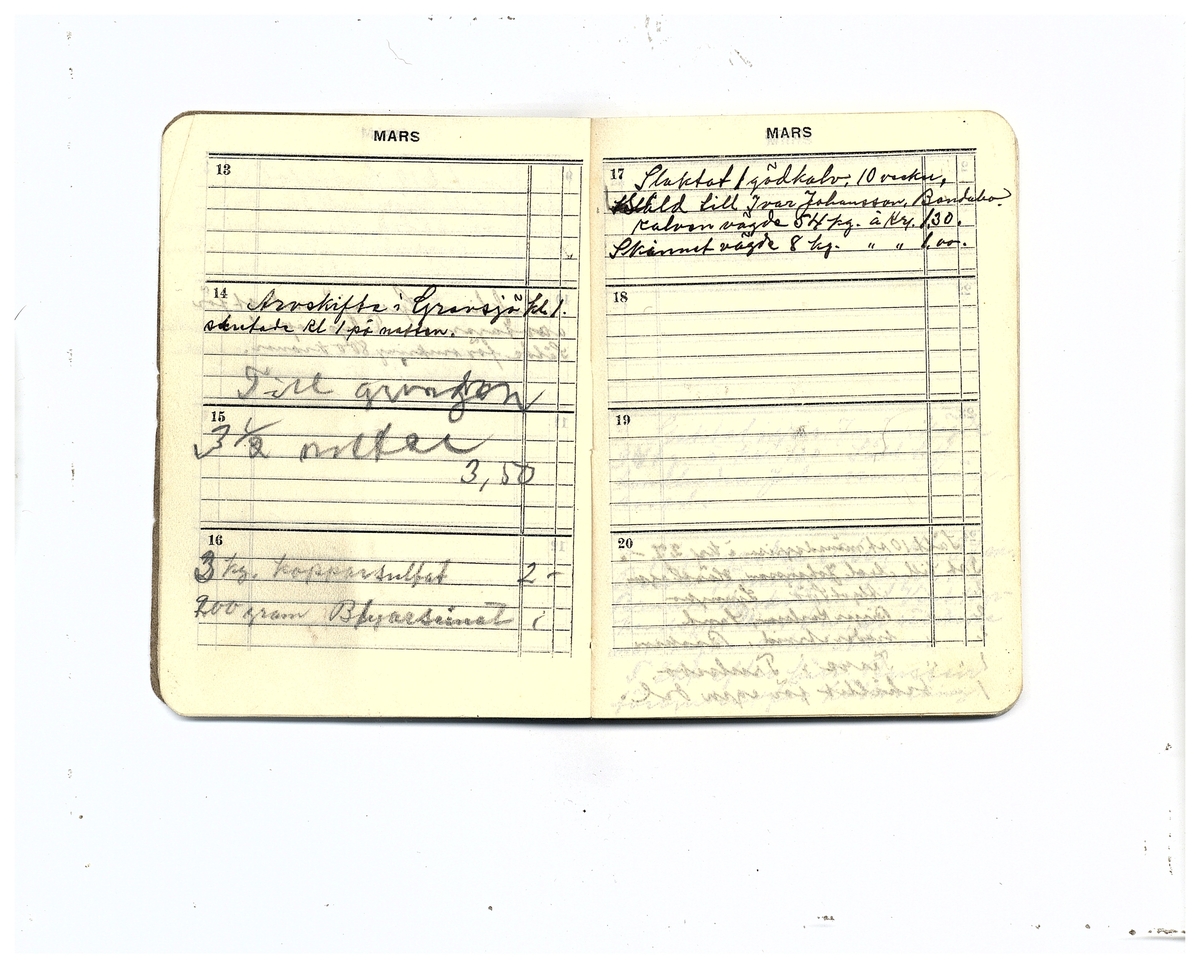 MARS
13
14 Arvskifte i Gransjö kl 1.
slutade kl 1 på natten.
Till grisen
15
3 1/2
3,50
16
3 kg. koppersulfat 2 -
200 gram Blyarseniat
MARS
17 Slaktat 1 gödkalv, 10 veckor,
Såld till Ivar Johansson, Bondabo.
Kalven vägde 54 kg. à Kr. 1,30.
Skinnet vägde 8 kg. " " 1,00.
18
19
20